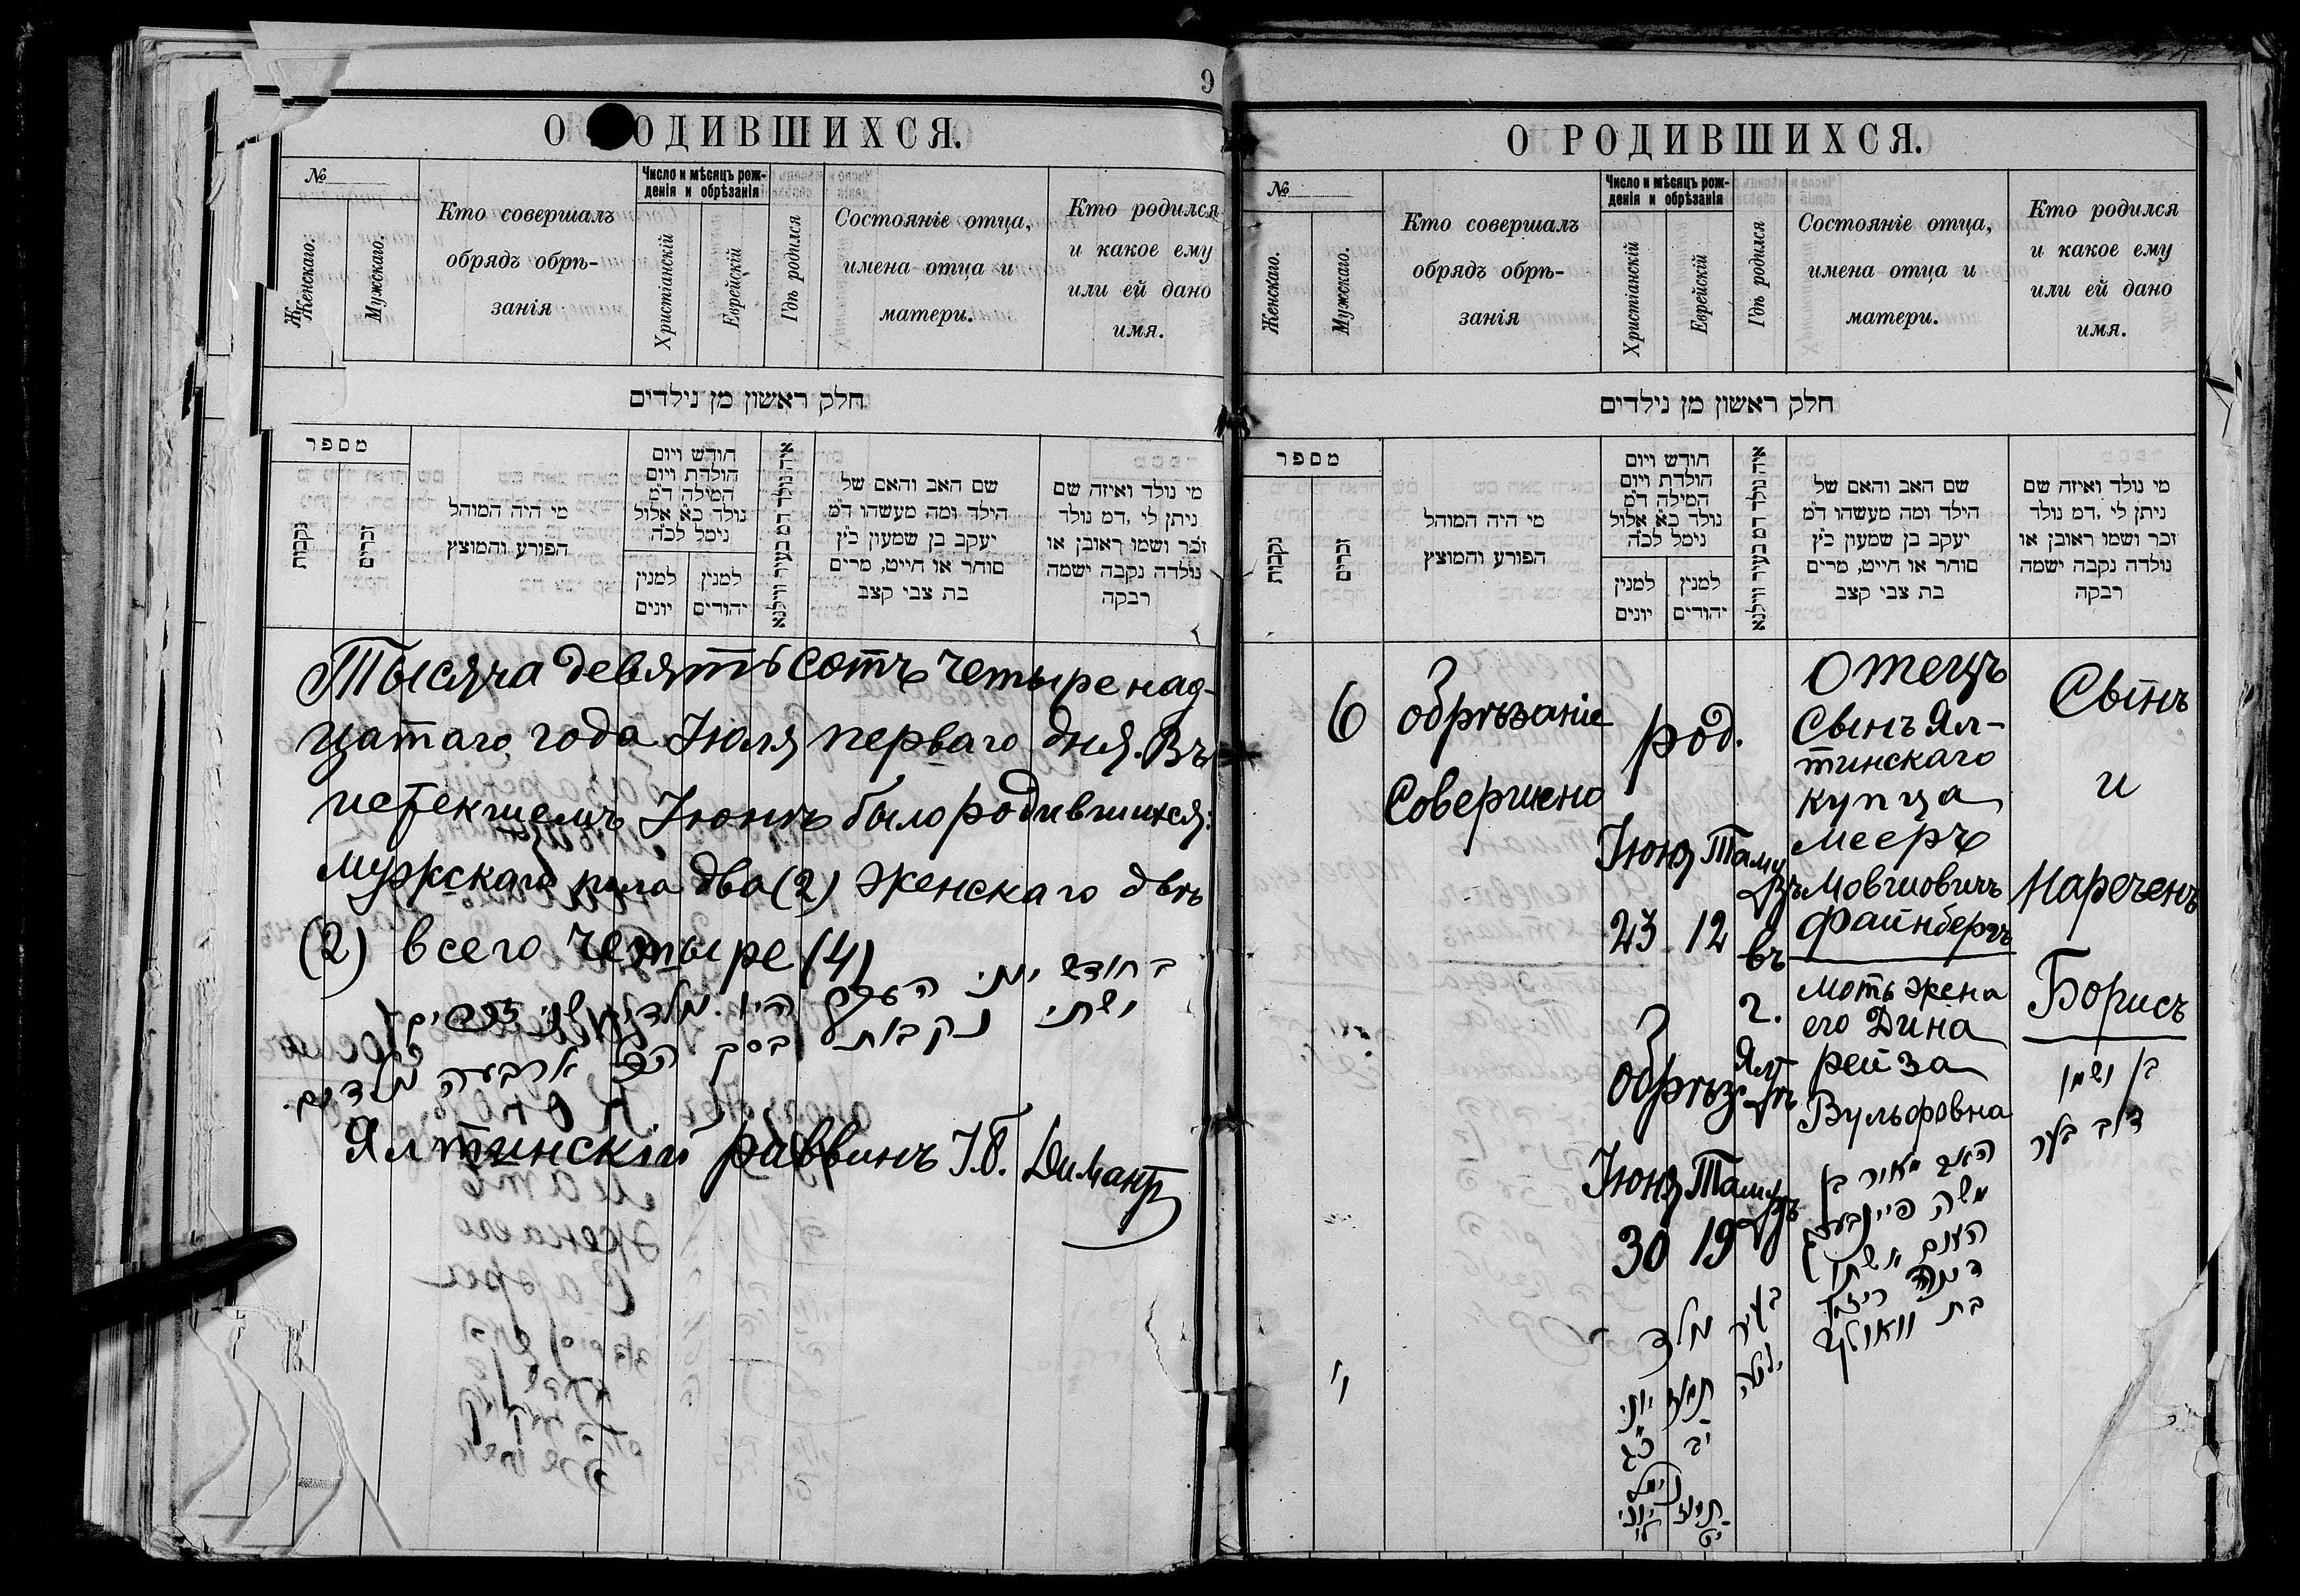 9
О РОДИВШИХСЯ.
№
Женскаго.
Мужскаго.
Кто совершалъ
обрядъ обрѣ-
занія
Число и мѣсяцъ рож-
денія и обрѣзанія
Христіанскій
Еврейскій
Гдѣ родился
Состояніе отца,
имена отца и
матери.
Кто родился
и какое ему
или ей дано
имя.
חלק ראשון מן נילדים
מספר
נקבות
זכרים
מי היה המוהל
הפורע והמוצץ
חודש ויום
הולדת ויום
המילה ד"מ
נולד כ"א אלול
נימל לכ"ה
למנין
יונים
למנין
יהודים
איה נולד דמ בעיר ווילנא
שם האב והאם של
הילד ומה מעשהו ד"מ
יעקב בן שמעון כ"ץ
סוחר או חייט, מרים
בת צבי קצב
מי נולד ואיזה שם
ניתן לי, דמ נולד
זכר ושמו ראובן או
נולדה נקבה ישמה
רבקה
Тысяча девятьсотъ четырнад-
цатаго года Іюля перваго дня. Въ
истекшемъ Іюнѣ было родившихся:
мужскаго пола два (2) женскаго двѣ
(2) всего четыре (4)
בחודש יוני העבר היו נולדים שני זכרים
ושתי נקבות בסך הכל ארבעה נולדים.
Ялтинскій раввинъ І.Б. Димантъ
О РОДИВШИХСЯ.
№
Женскаго.
Мужскаго.
Кто совершалъ
обрядъ обрѣ-
занія
Число и мѣсяцъ рож-
денія и обрѣзанія
Христіанскій
Еврейскій
Гдѣ родился
Состояніе отца,
имена отца и
матери.
Кто родился
и какое ему
или ей дано
имя.
חלק ראשון מן נילדים
מספר
נקבות
זכרים
מי היה המוהל
הפורע והמוצץ
חודש ויום
הולדת ויום
המילה ד"מ
נולד כ"א אלול
נימל לכ"ה
למנין
יונים
למנין
יהודים
איה נולד דמ בעיר ווילנא
שם האב והאם של
הילד ומה מעשהו ד"מ
יעקב בן שמעון כ"ץ
סוחר או חייט, מרים
בת צבי קצב
מי נולד ואיזה שם
ניתן לי, דמ נולד
זכר ושמו ראובן או
נולדה נקבה ישמה
רבקה
6
ו'
обрѣзаніе
совершено
род.
Іюня
23
Тамузъ
12
обрѣз.
Іюня
30
Тамузъ
19
נולד
יוני
כ"ג
תמוז
י"ב
נימול
יוני
ל'
תמוז
י"ט
въ
г.
Ялтѣ
בעיר
יאלטה
Отецъ
Сынъ Ял-
тинскаго
купца
Мееръ
Мовшовичъ
Файнбергъ
Мать жена
его Дина
Рейза
Вульфовна
האב מאיר בן
משה פיינבערג
האם אשתו
דינה רייזע
בת וואולף
Сынъ
и
Нареченъ
Борисъ
בן ושמו
דוב בער